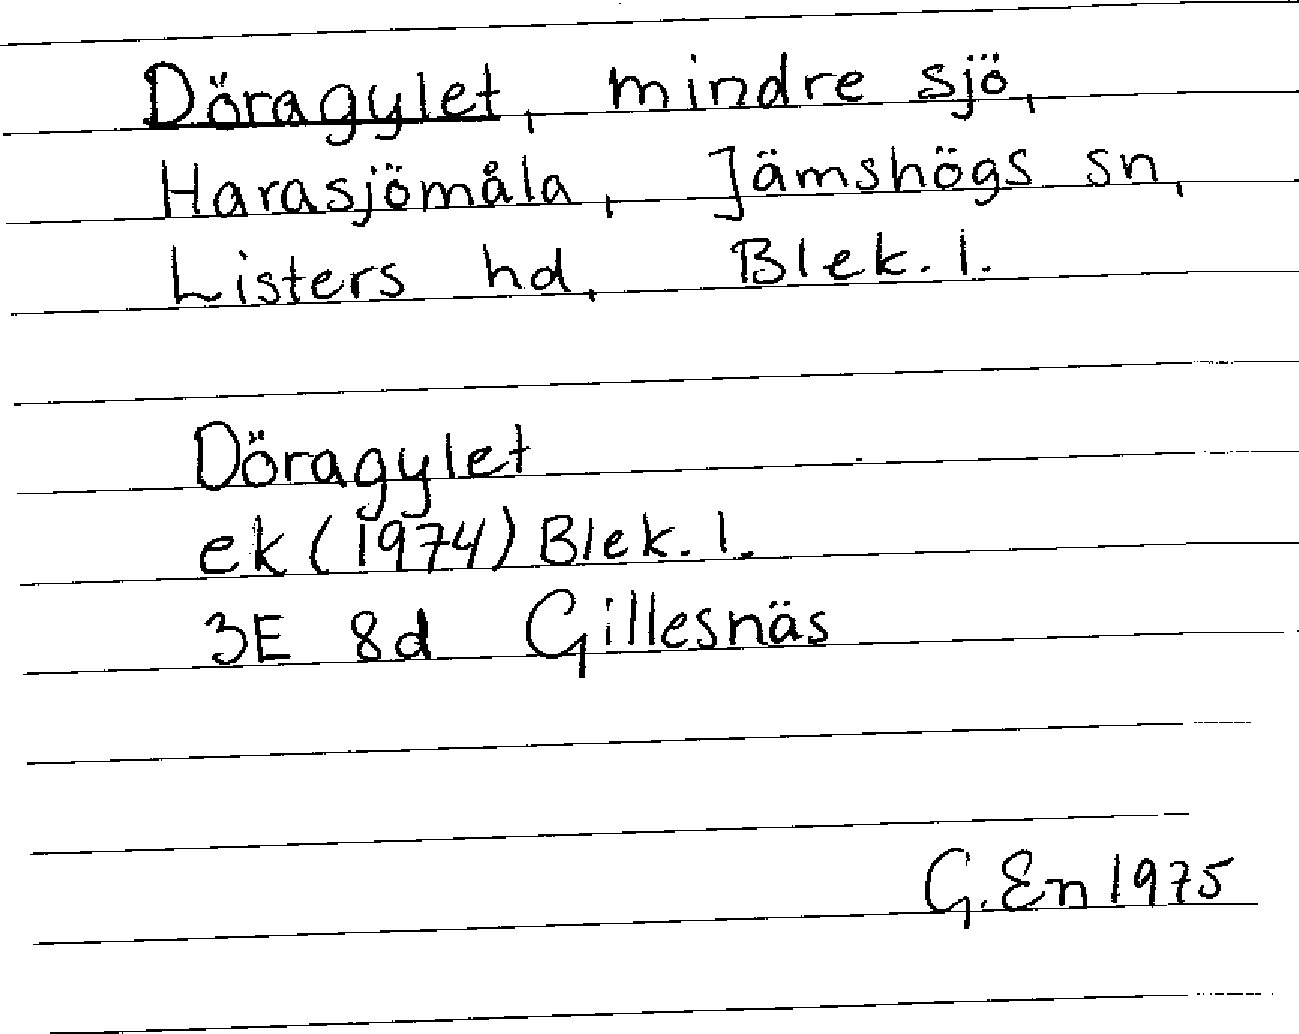 Döragylet, mindre sjö,
Harasjömåla, Jämshögs sn,
Listers hd, Blek. l.
Döragylet
ek (1974) Blek. l.
3E 8d Gillesnäs
G. En 1975